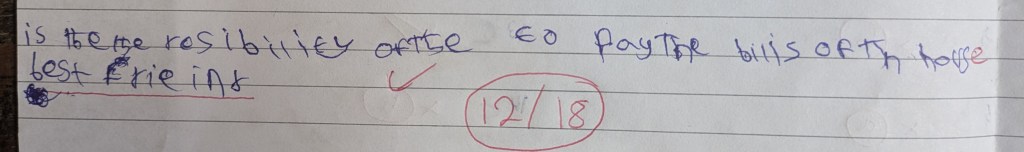 is the the resibility of the to pay the bills of th house
best frieins
12/18